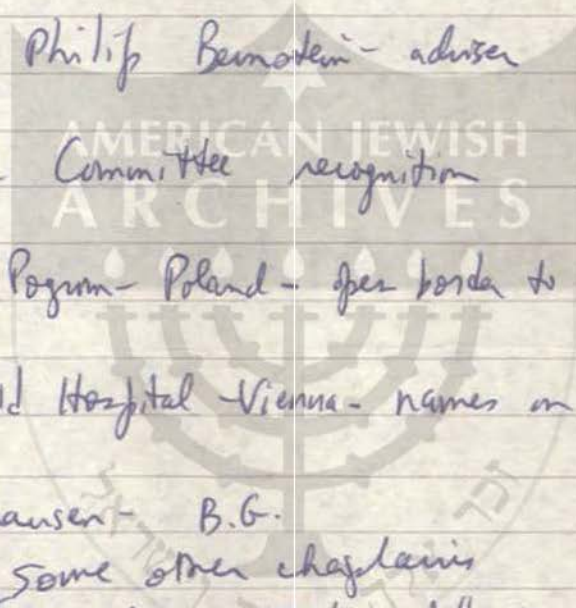 Philip Bernstein - adviser
AMERICAN JEWISH
Committee recognition
ARCHIVES
Pogrom - Poland - open border to
Hospital - Vienna - names on
ausen - B.G.
some other chaplains